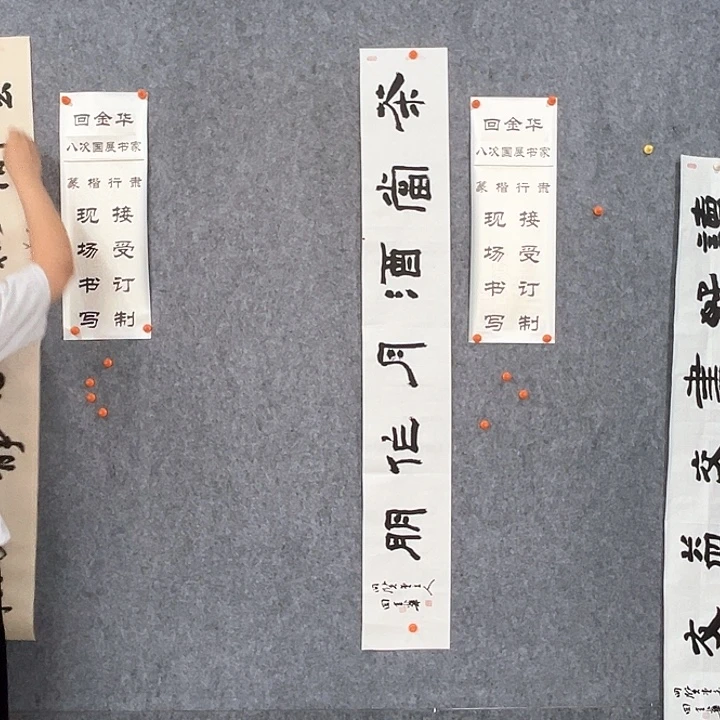 回金华
八次国展书家
篆楷行隶
现场书写
接受订制
茶當酒月作朋
回金华
八次国展书家
篆楷行隶
现场书写
接受订制
讀好書交益友